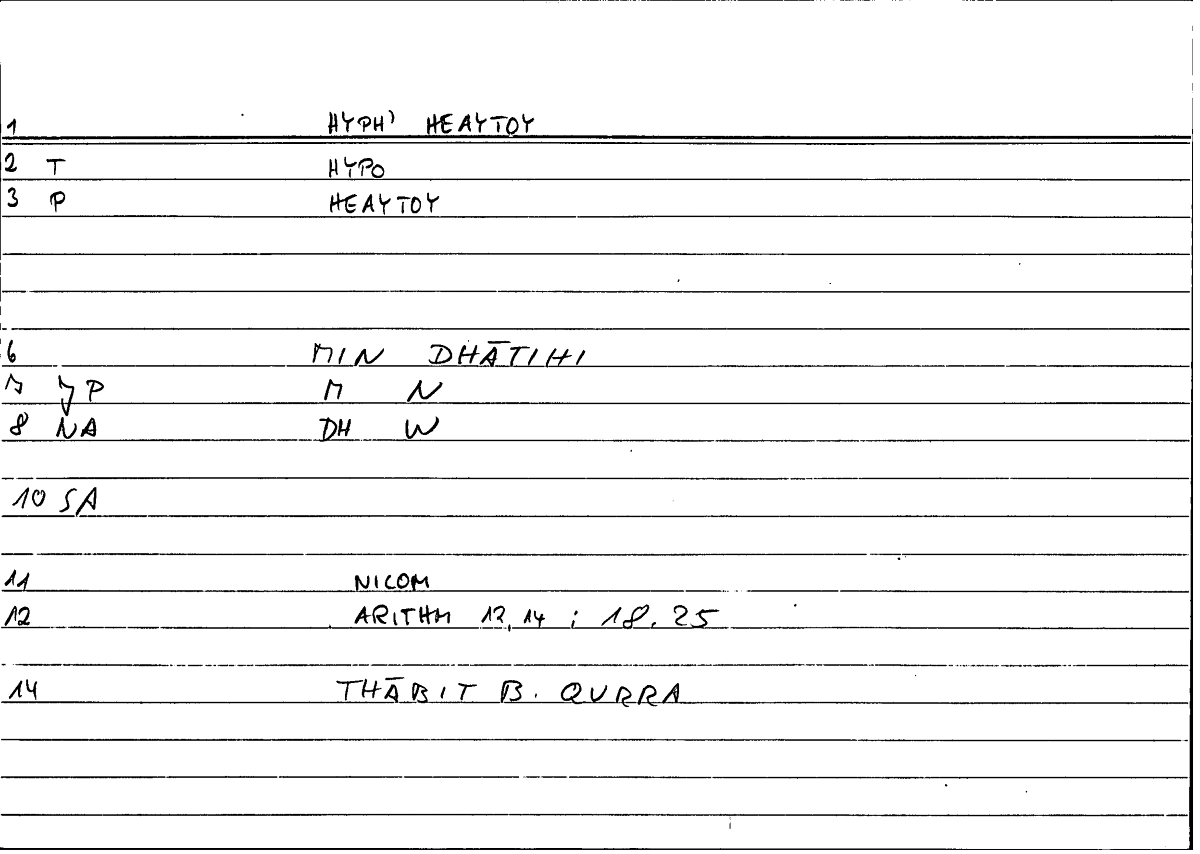 1 HYPH' HEAYTOY
2 T HYPO
3 P HEAYTOY
6 MIN DHĀTIHI
7 JP M N
8 NA DH W
10 SA
11 NICOM
12 ARITHM 12,14 ; 18.25
14 THĀBIT B. QURRA